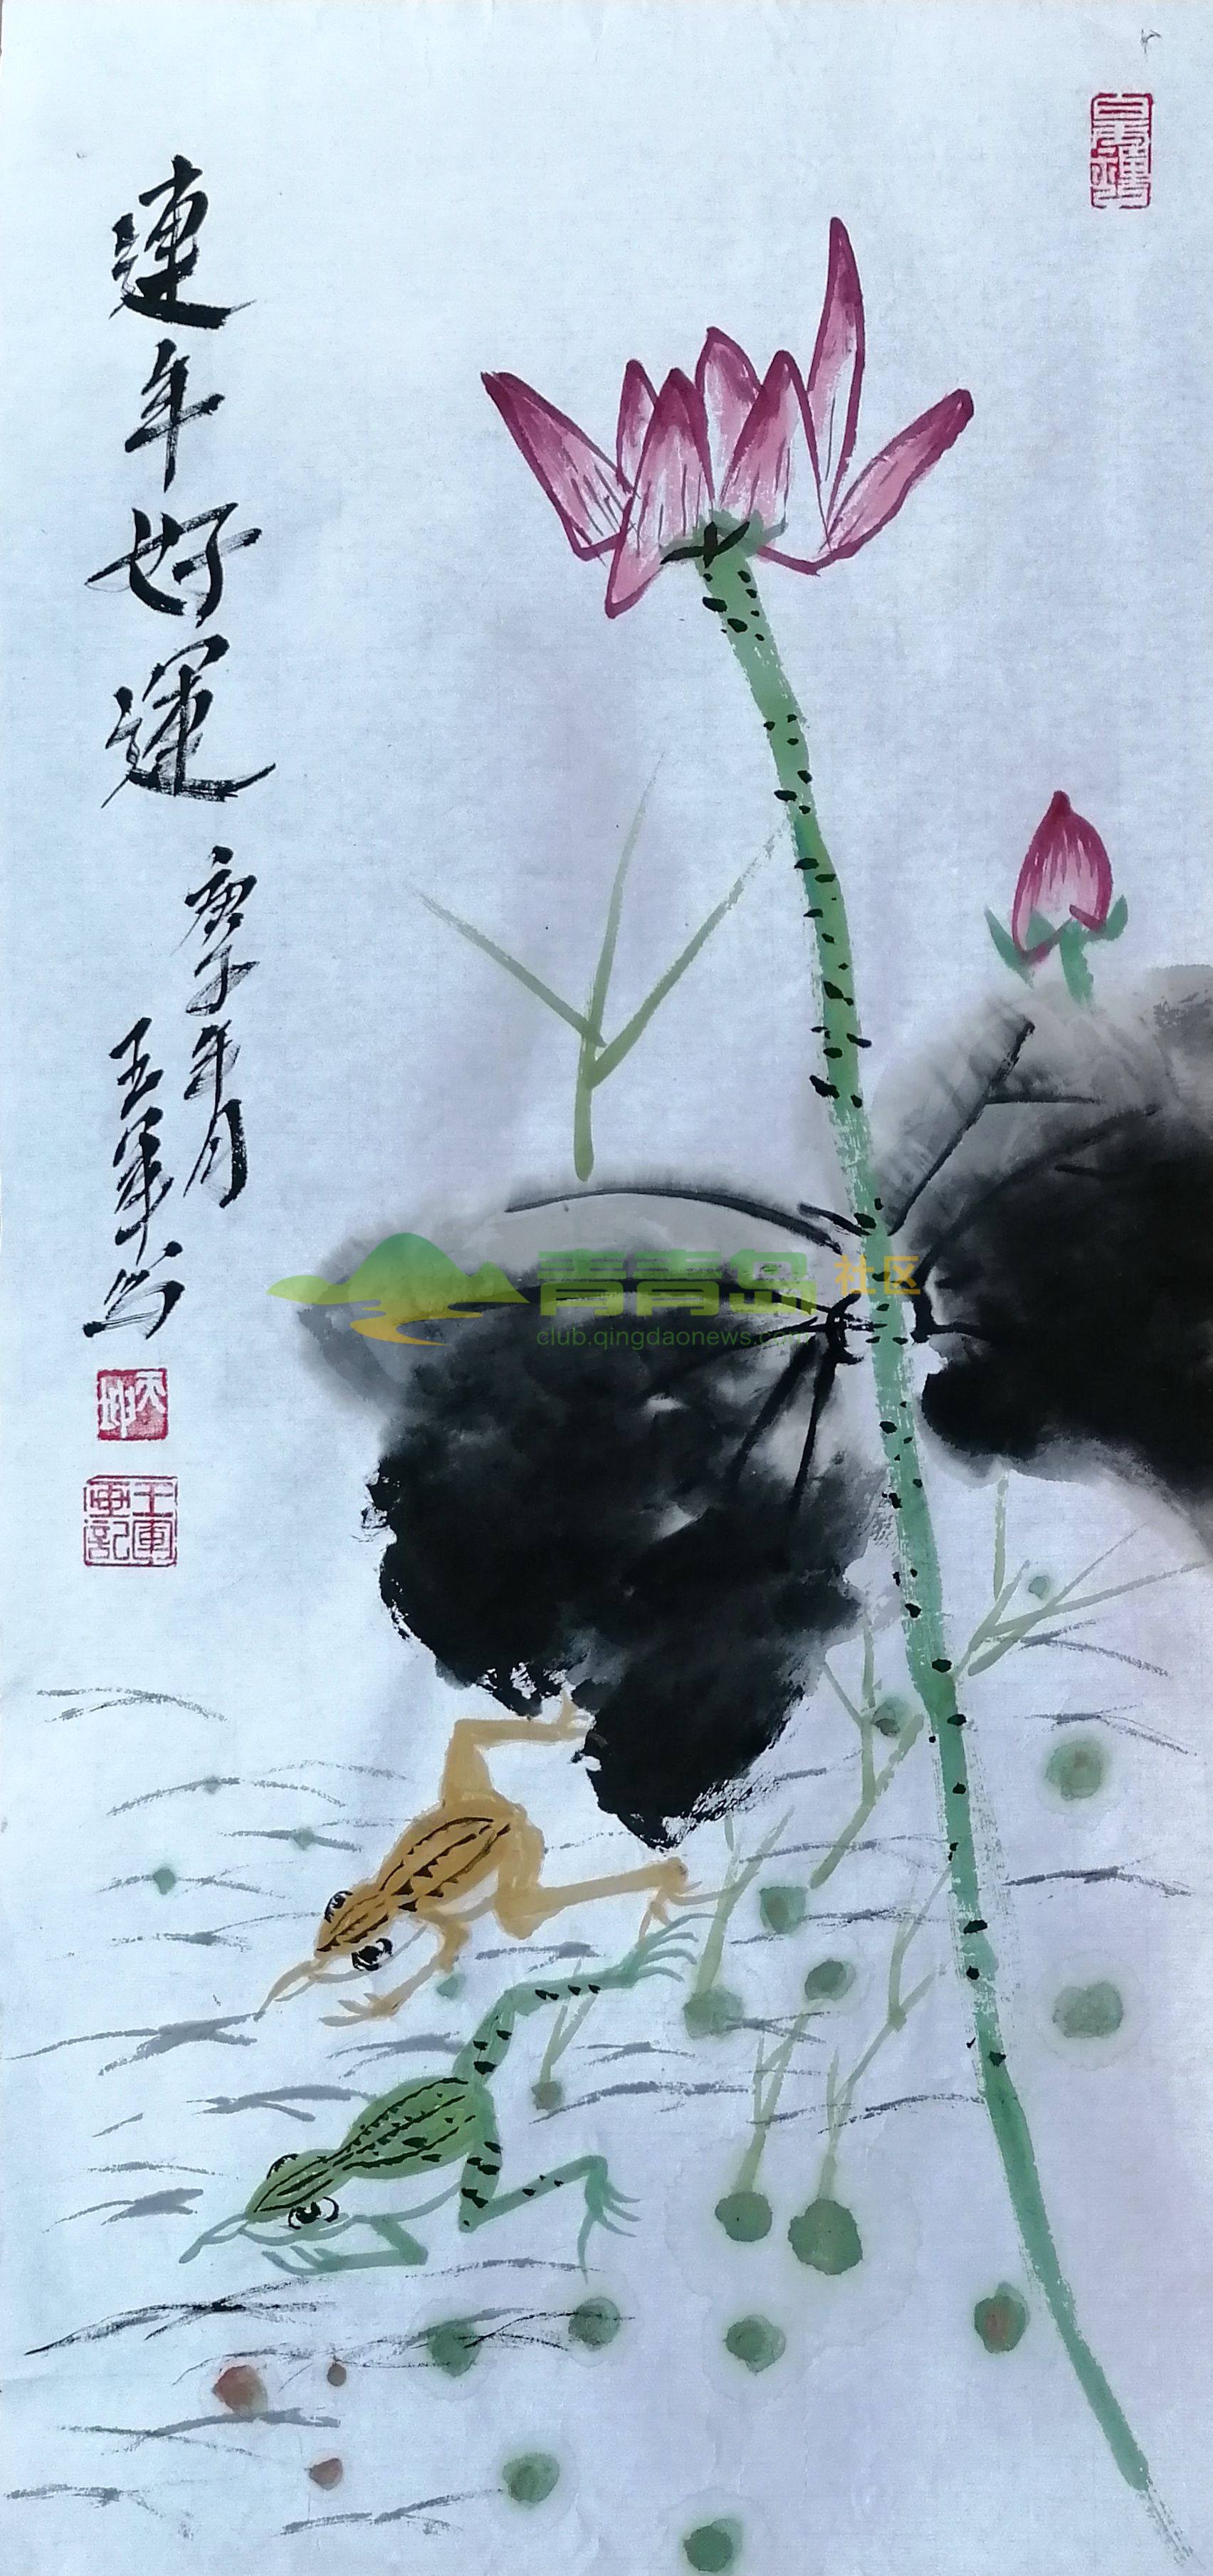 連年好運
庚子年月
王軍写
天坤
王軍
畫記
青青岛 社区
club.qingdaonews.com